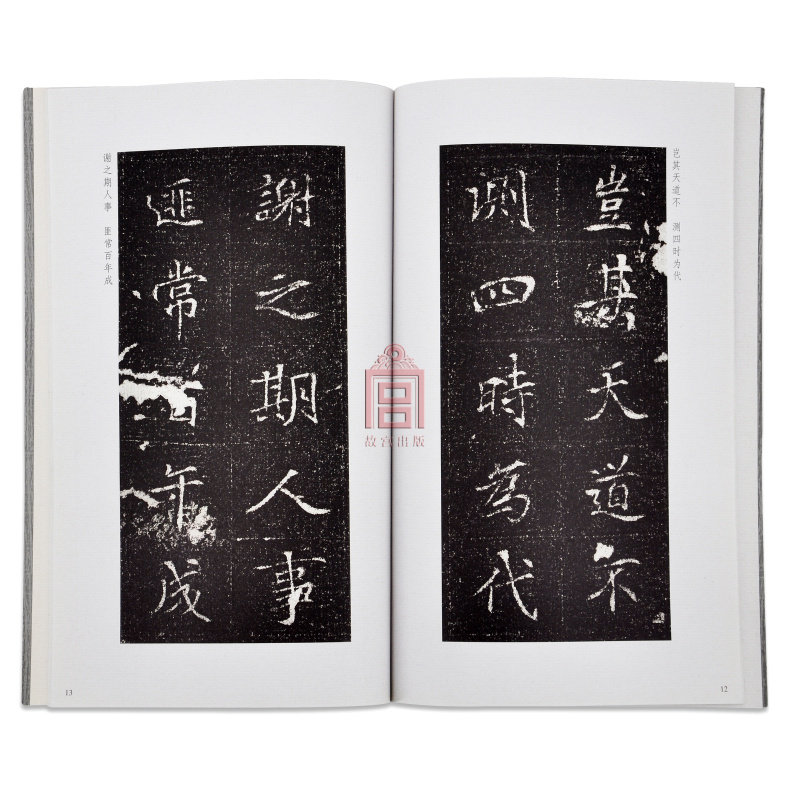 岂其天道不　测四时为代
豈其天道不
測四時為代
12
故宫出版
謝之期人事
匪常百年成
谢之期人事　匪常百年成
13